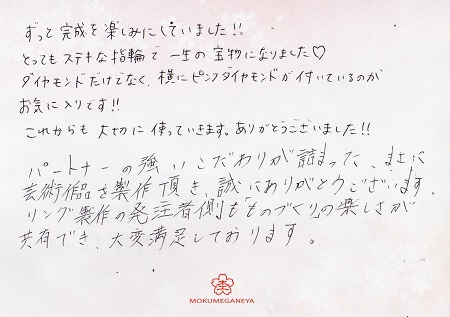 ずっと完成を楽しみにしていました!!
とってもステキな指輪で一生の宝物になりました♡
ダイヤモンドだけでなく、横にピンクダイヤモンドが付いているのが
お気に入りです!!
これからも大切に使っていきます。ありがとうございました!!
パートナーの強いこだわりが詰まった、まさに
芸術作品を製作頂き、誠にありがとうございます。
リング製作の発注者側も「ものづくり」の楽しさが
共有でき、大変満足しております。
MOKUMEGANEYA